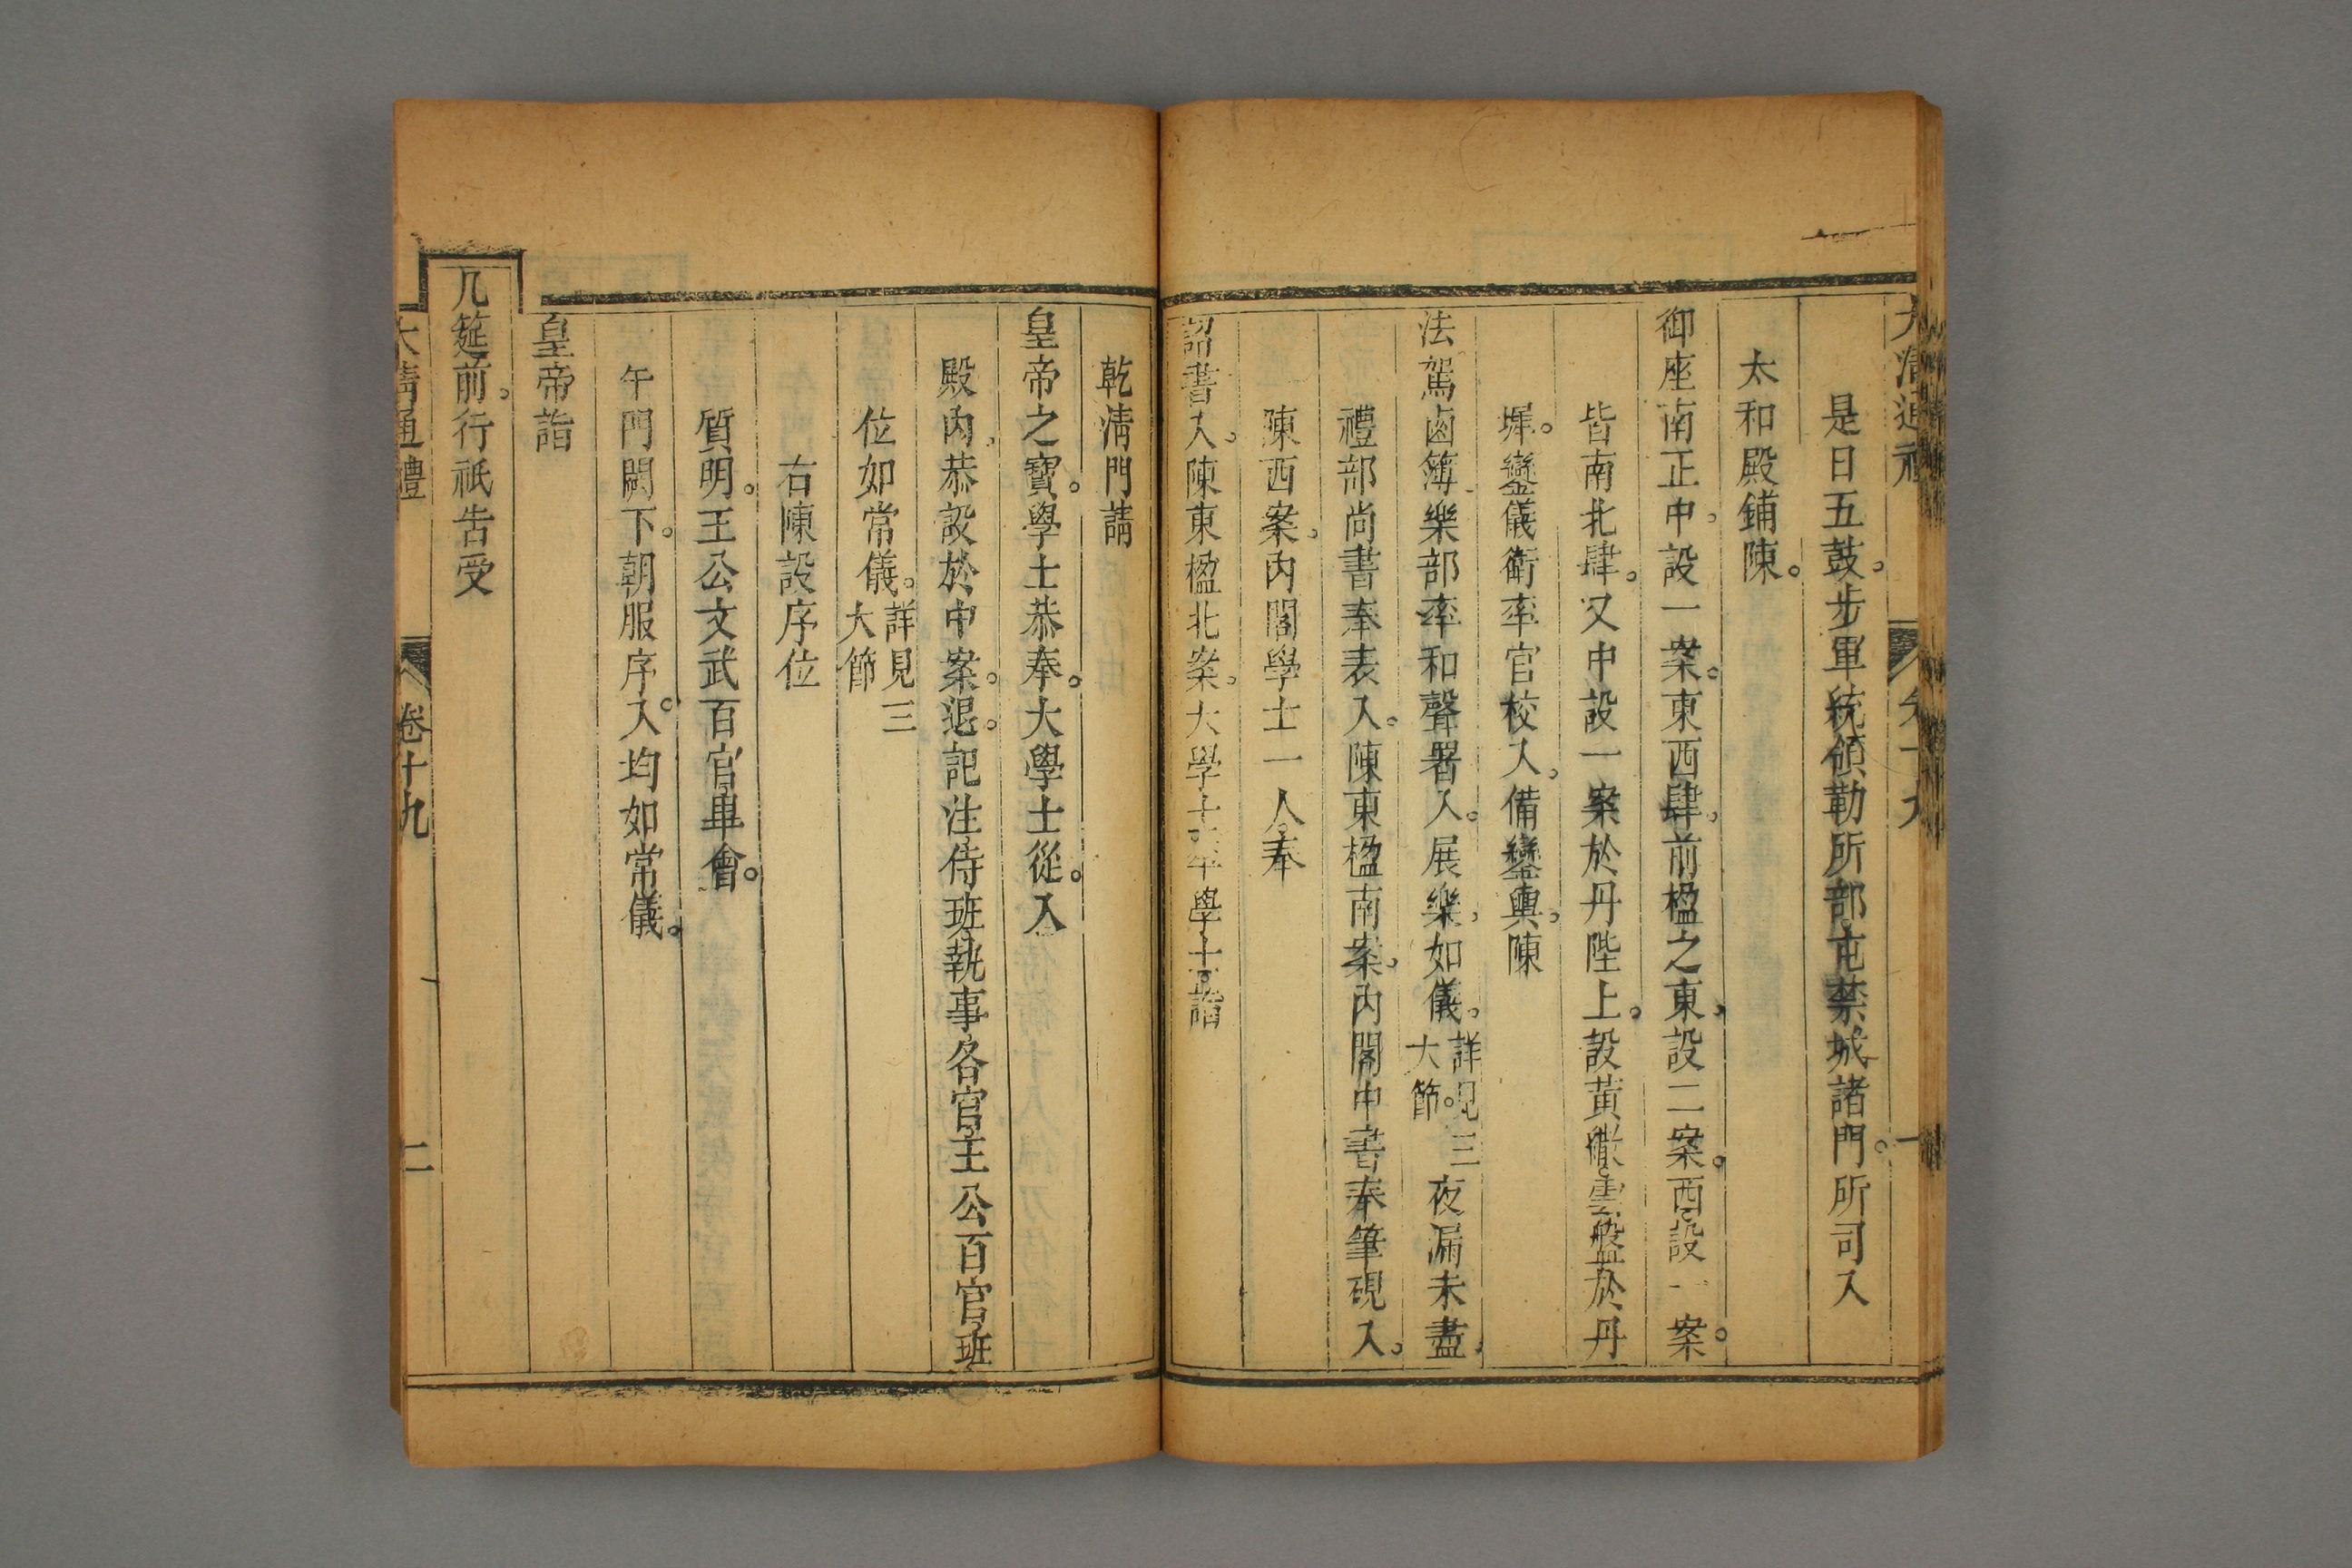 大清通禮 卷十九 一
是日五鼓。步軍統領勒所部屯禁城諸門。所司入
太和殿鋪陳。
御座南正中。設一案。東西肆。前楹之東。設二案。西設一案。
皆南北肆。又中設一案於丹陛上。設黃繖雲盤於丹
墀。鑾儀衛率官校入。備鑾輿。陳
法駕鹵簿。樂部率和聲署入。展樂。如儀。詳見三大節。夜漏未盡。
禮部尚書奉表入。陳東楹南案。內閣中書奉筆硯入。
陳西案。內閣學士一人奉
詔書入。陳東楹北案。大學士率學士詣
乾清門請
皇帝之寶。學士恭奉。大學士從。入
殿內。恭設於中案。退。記注侍班執事各官王公百官班
位如常儀。詳見三大節
右陳設序位
質明。王公文武百官畢會。
午門闕下。朝服序入。均如常儀。
皇帝詣
几筵前。行祇告受
大清通禮 卷十九 二